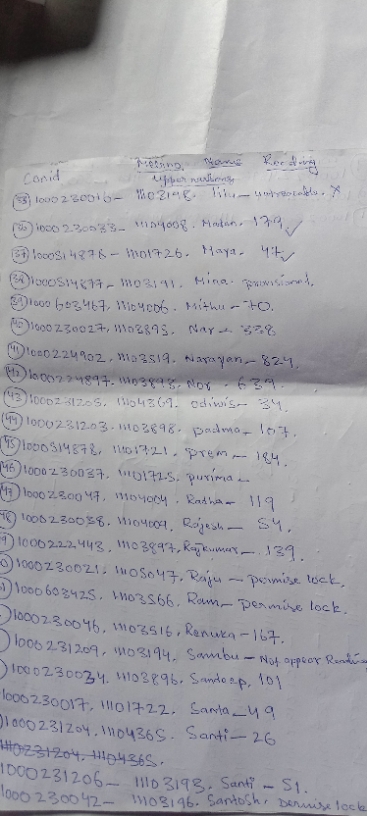 Canid Meterno Name Reading
35 1000230016- 11103198. Titu- unreacable. X
36 1000230033- 11104008. Madan. 179 ✓
37 1000514876- 11101726. Maya. 47 ✓
38 1000514877- 11103191. Mina. provisional.
39 1000603467, 11104006. Mithu- 70.
40 1000230027, 11103895. Nar- 338
41 1000224902, 11103519. Narayan- 824.
42 1000224897, 11103893. Nor. 639.
43 1000231205, 11104369. odiwis- 34.
44 1000231203- 11103898. padma- 107.
45 1000514878, 11101721. prem- 184.
46 1000230037. 11101725. purima-
47 1000230047, 11104004. Radha- 119
48 1000230038, 11104009, Rajesh- 54.
1000222443, 11103897, Rajkumar-. 139.
1000230021, 11105047, Raju- primise lock.
1000603425, 11103566. Ram- permise lock.
1000230046, 11103516, Renuka-167.
1000231209, 11103194. Sambu- Not appear Reading
1000230034, 11103896. Sandeep, 101
1000230017, 11101722. Santa-49
1000231204, 11104365. Santi-26
1110231204. 11104365.
1000231206- 11103193. Santi- 51.
1000230042- 11103196. Santosh. permise lock